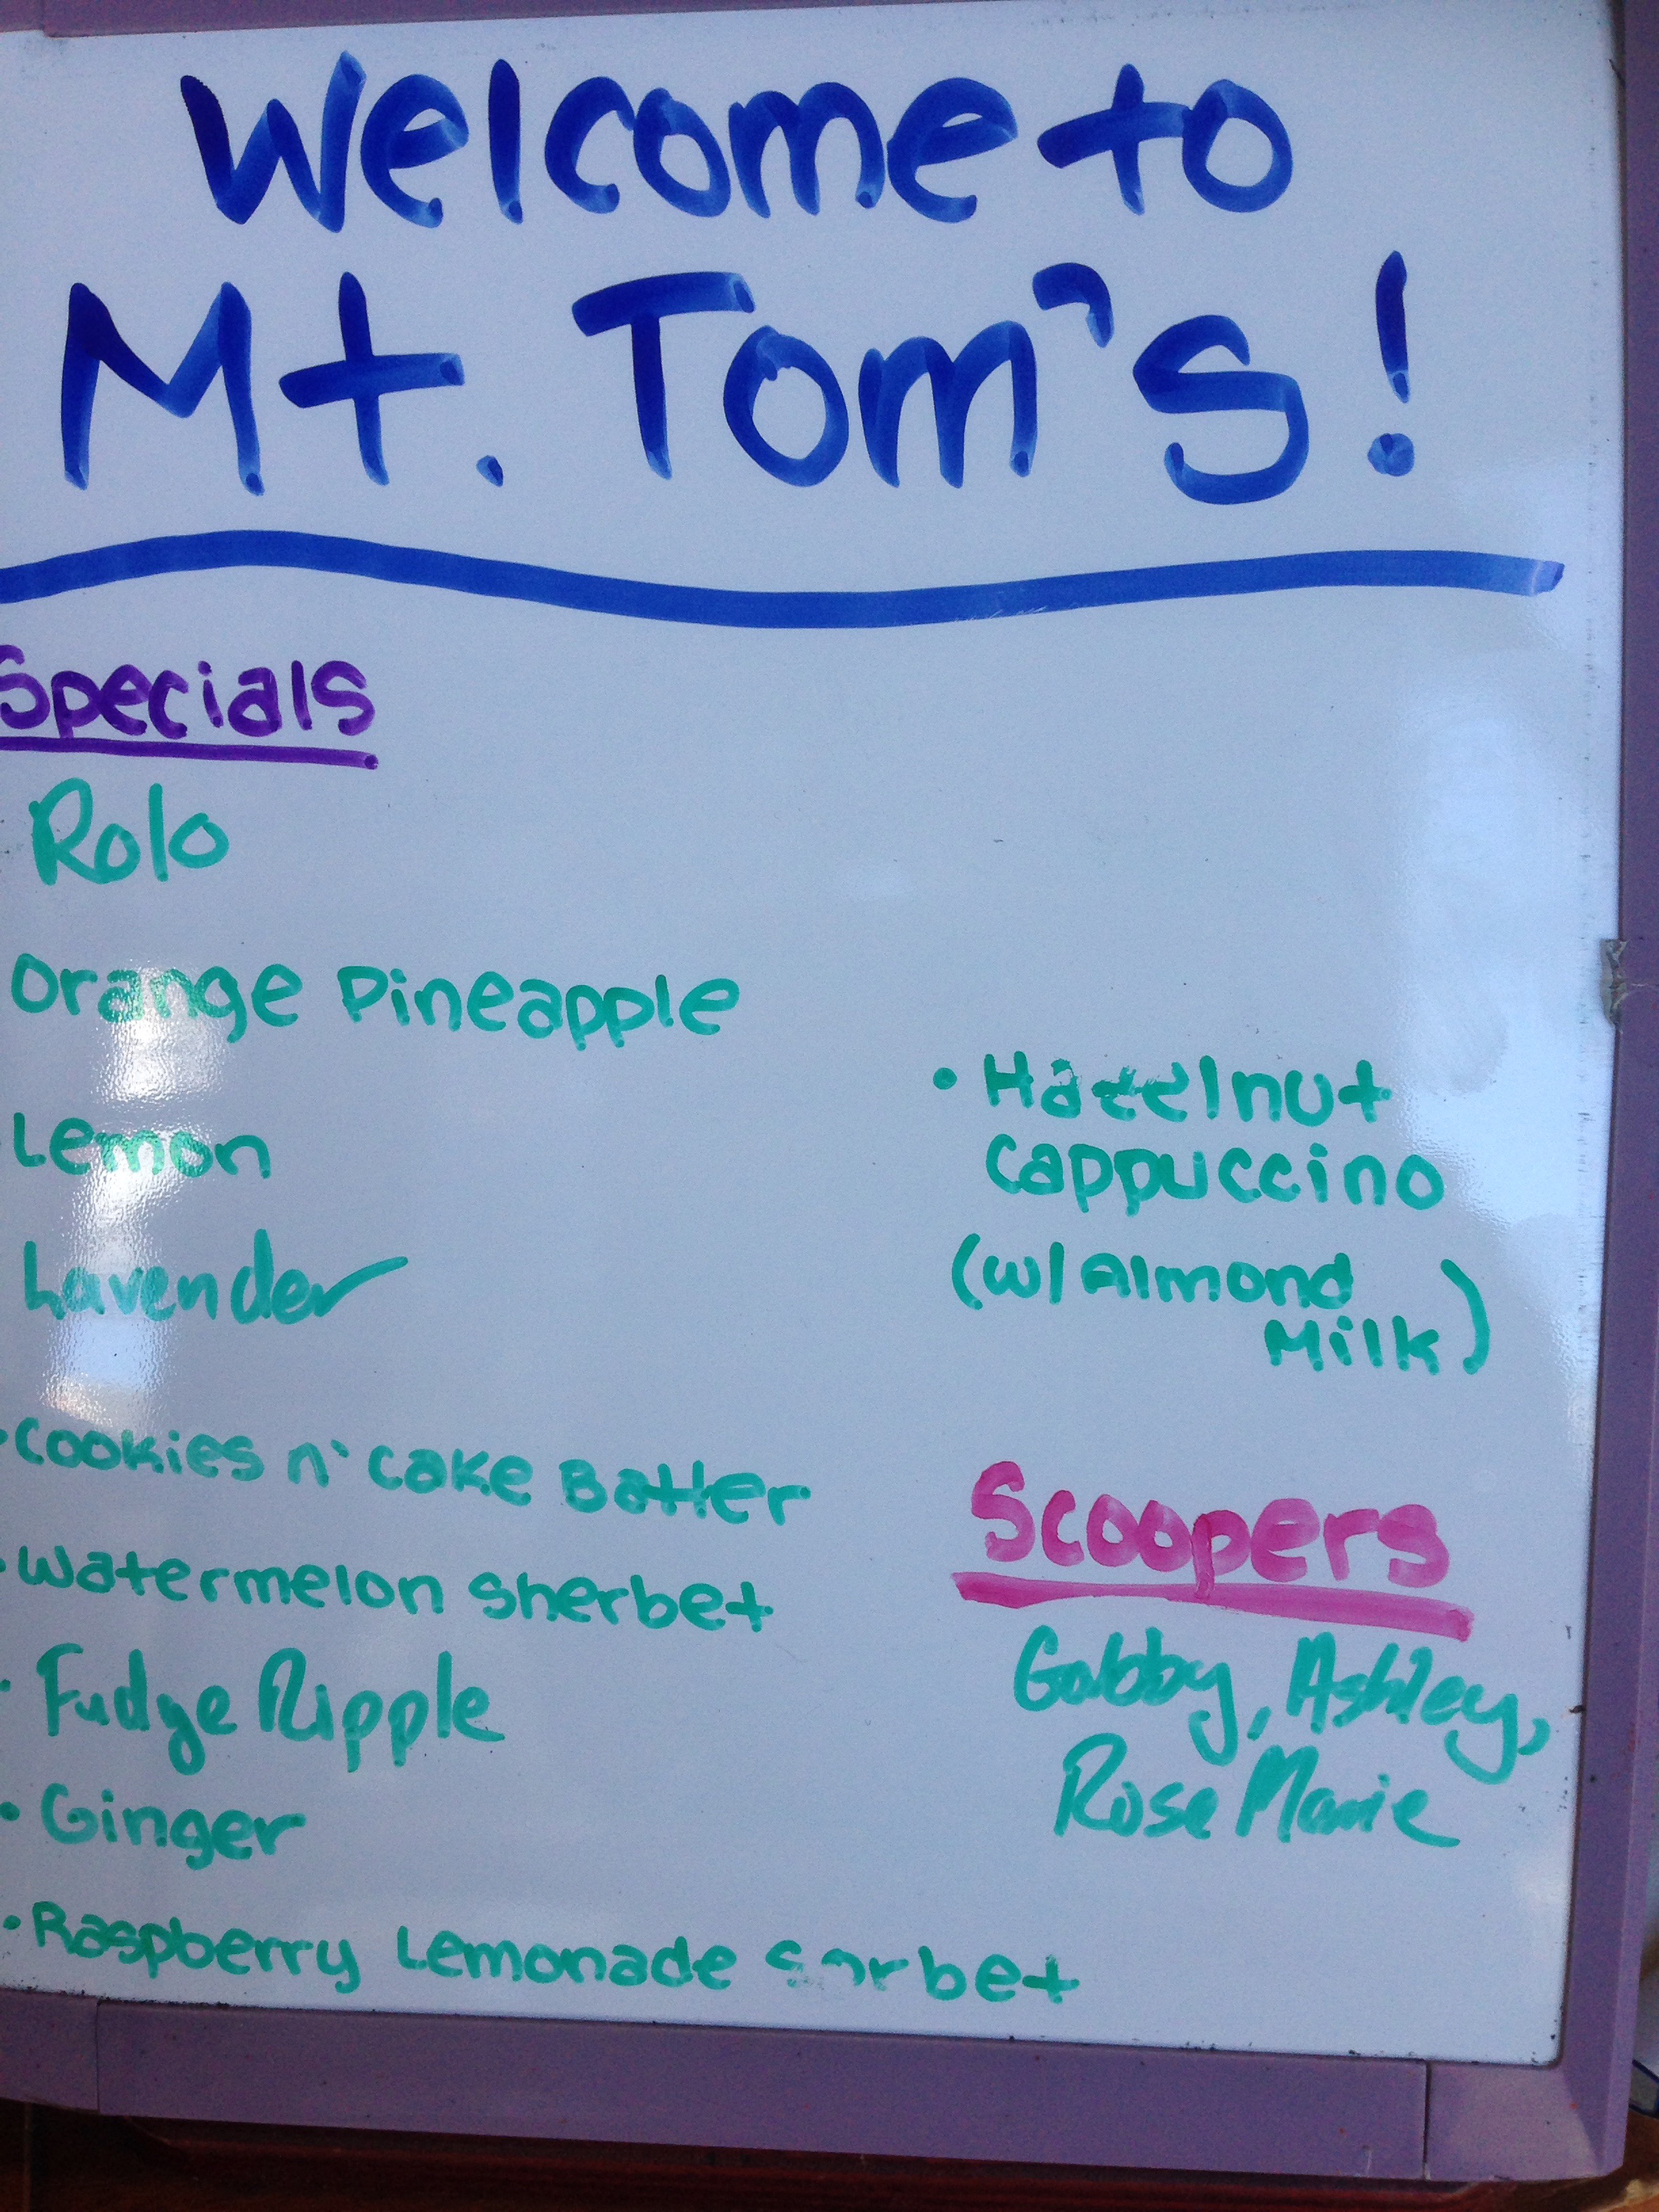 Welcome to
Mt. Tom's!
Specials
Rolo
Orange Pineapple
Lemon
Lavender
• Cookies n' Cake Batter
• Watermelon Sherbet
• Fudge Ripple
• Ginger
• Raspberry Lemonade Sorbet
• Hazelnut
Cappuccino
(w/ Almond
Milk)
Scoopers
Gabby, Ashley,
Rose Marie